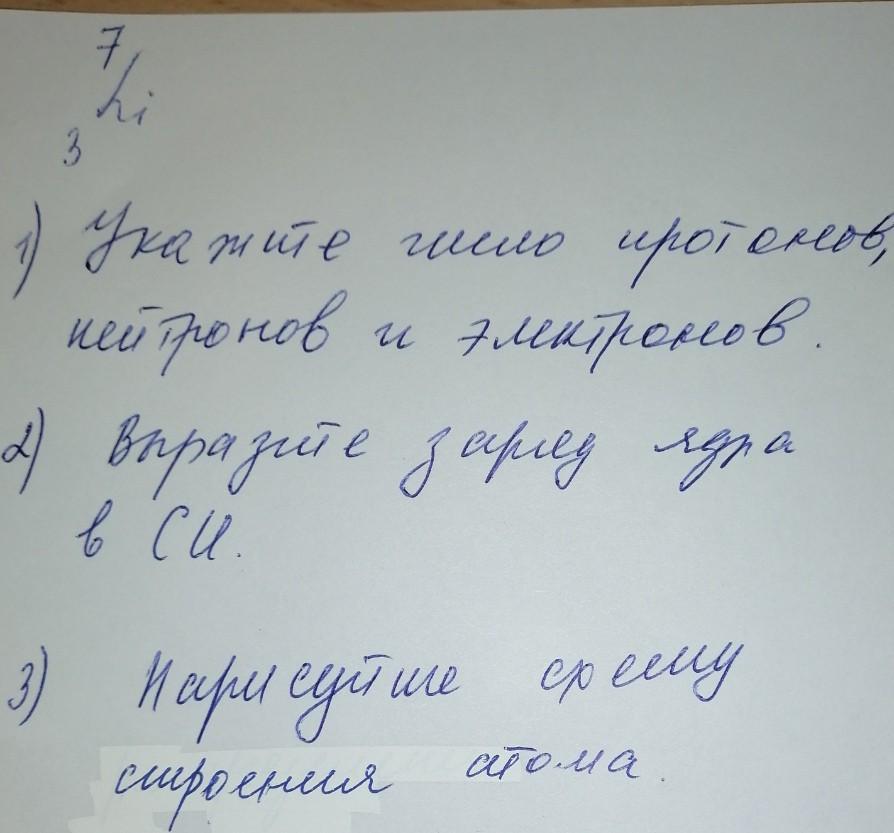 7
Li
3
1) Укажите число протонов,
нейтронов и электронов.
2) Выразите заряд ядра
в СИ.
3) Нарисуйте схему
строения атома.